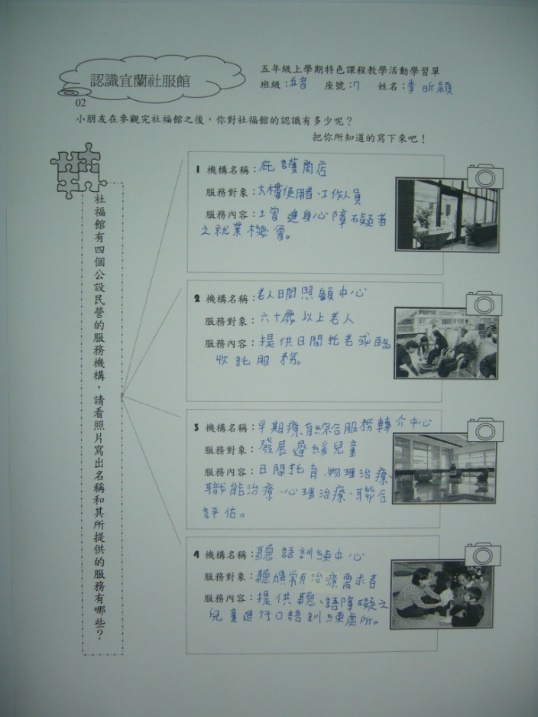 認識宜蘭社服館
五年級上學期特色課程教學活動學習單
班級: 座號:17 姓名:李昕穎
02
小朋友在參觀完社福館之後,你對社福館的認識有多少呢?
把你所知道的寫下來吧!
社福館有四個公設民營的服務機構,請看照片寫出名稱和其所提供的服務有哪些?
1 機構名稱:庇護商店
服務對象:大樓使用者、工作人員
服務內容:增進身心障礙者
之就業機會。
2 機構名稱:老人日間照顧中心
服務對象:六十歲以上老人
服務內容:提供日間托老或臨
收託服務。
3 機構名稱:早期療育綜合服務轉介中心
服務對象:發展遲緩兒童
服務內容:日間托育、物理治療
職能治療、心理治療、聯合
評估。
4 機構名稱:聽語訓練中心
服務對象:聽損需有治療需求者
服務內容:提供聽、語障礙之
兒童進行口語訓練處所。